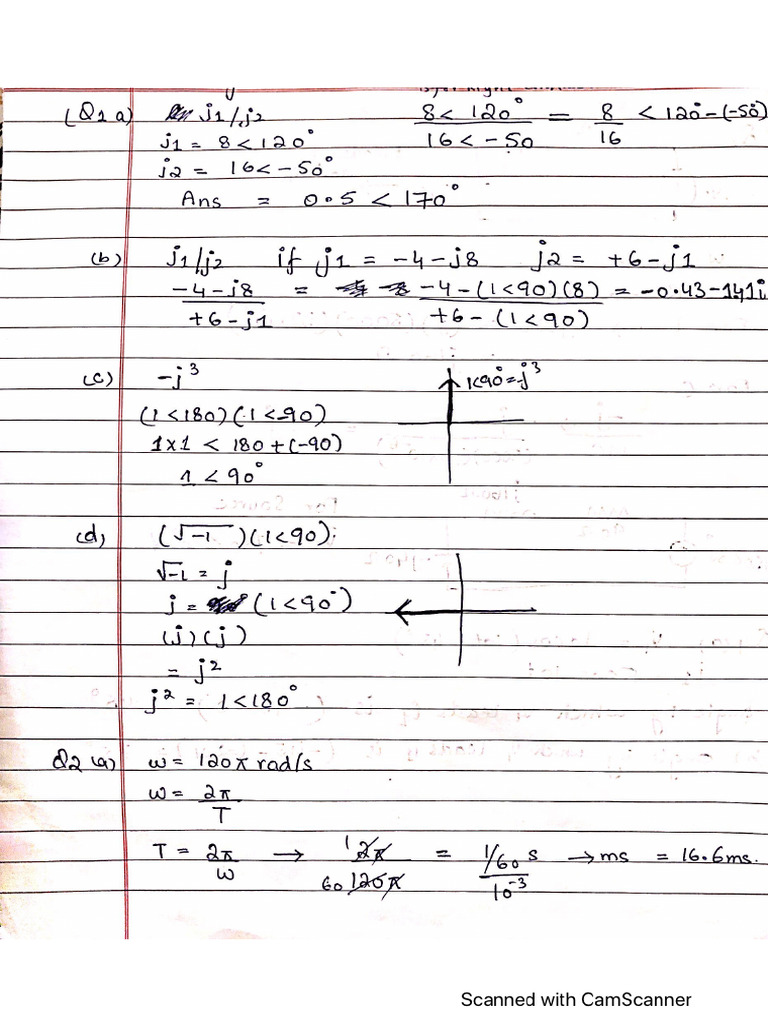 (Q1 a) j1/j2 8<120° / 16<-50 = 8/16 < 120-(-50)
j1 = 8<120°
j2 = 16<-50°
Ans = 0.5 < 170°
(b) j1/j2 if j1 = -4-j8 j2 = +6-j1
-4-j8 / +6-j1 = -4-(1<90)(8) / +6-(1<90) = -0.43-1.41i
(c) -j³ 1<90°=-j³
(1<180)(1<-90)
1×1 < 180+(-90)
1 < 90°
(d) (√-1)(1<90)
√-1 = j
j = (1<90°)
(j)(j)
= j²
j² = 1<180°
Q2 (a) ω = 120π rad/s
ω = 2π/T
T = 2π/ω → 1 2π / 60 120π = 1/60 s / 10⁻³ → ms = 16.6ms.
Scanned with CamScanner